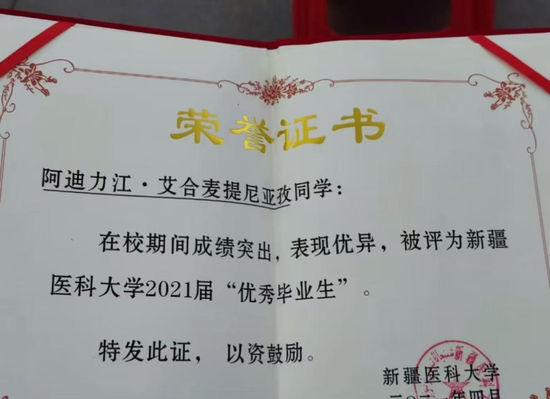 荣誉证书
阿迪力江·艾合麦提尼亚孜同学：
在校期间成绩突出，表现优异，被评为新疆
医科大学2021届“优秀毕业生”。
特发此证，以资鼓励。
新疆医科大学
二〇二一年四月